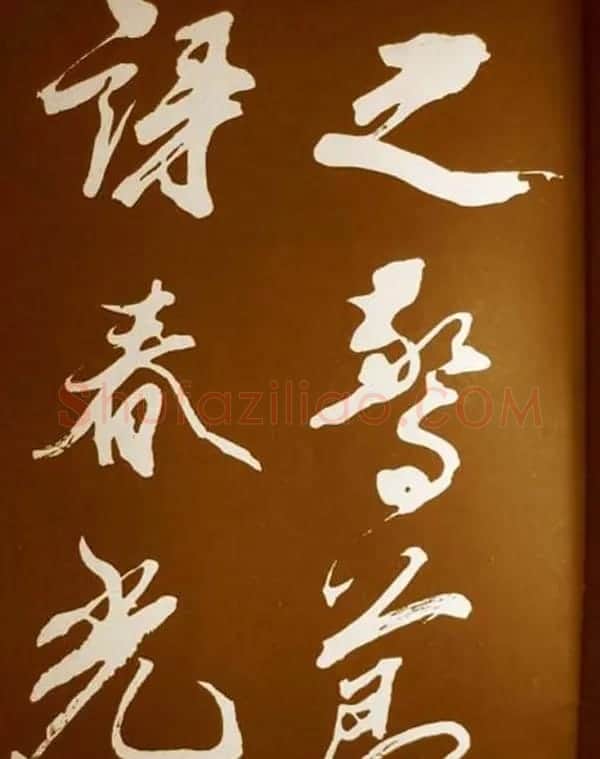 之驚萬
春光
Shufaziliao.COM